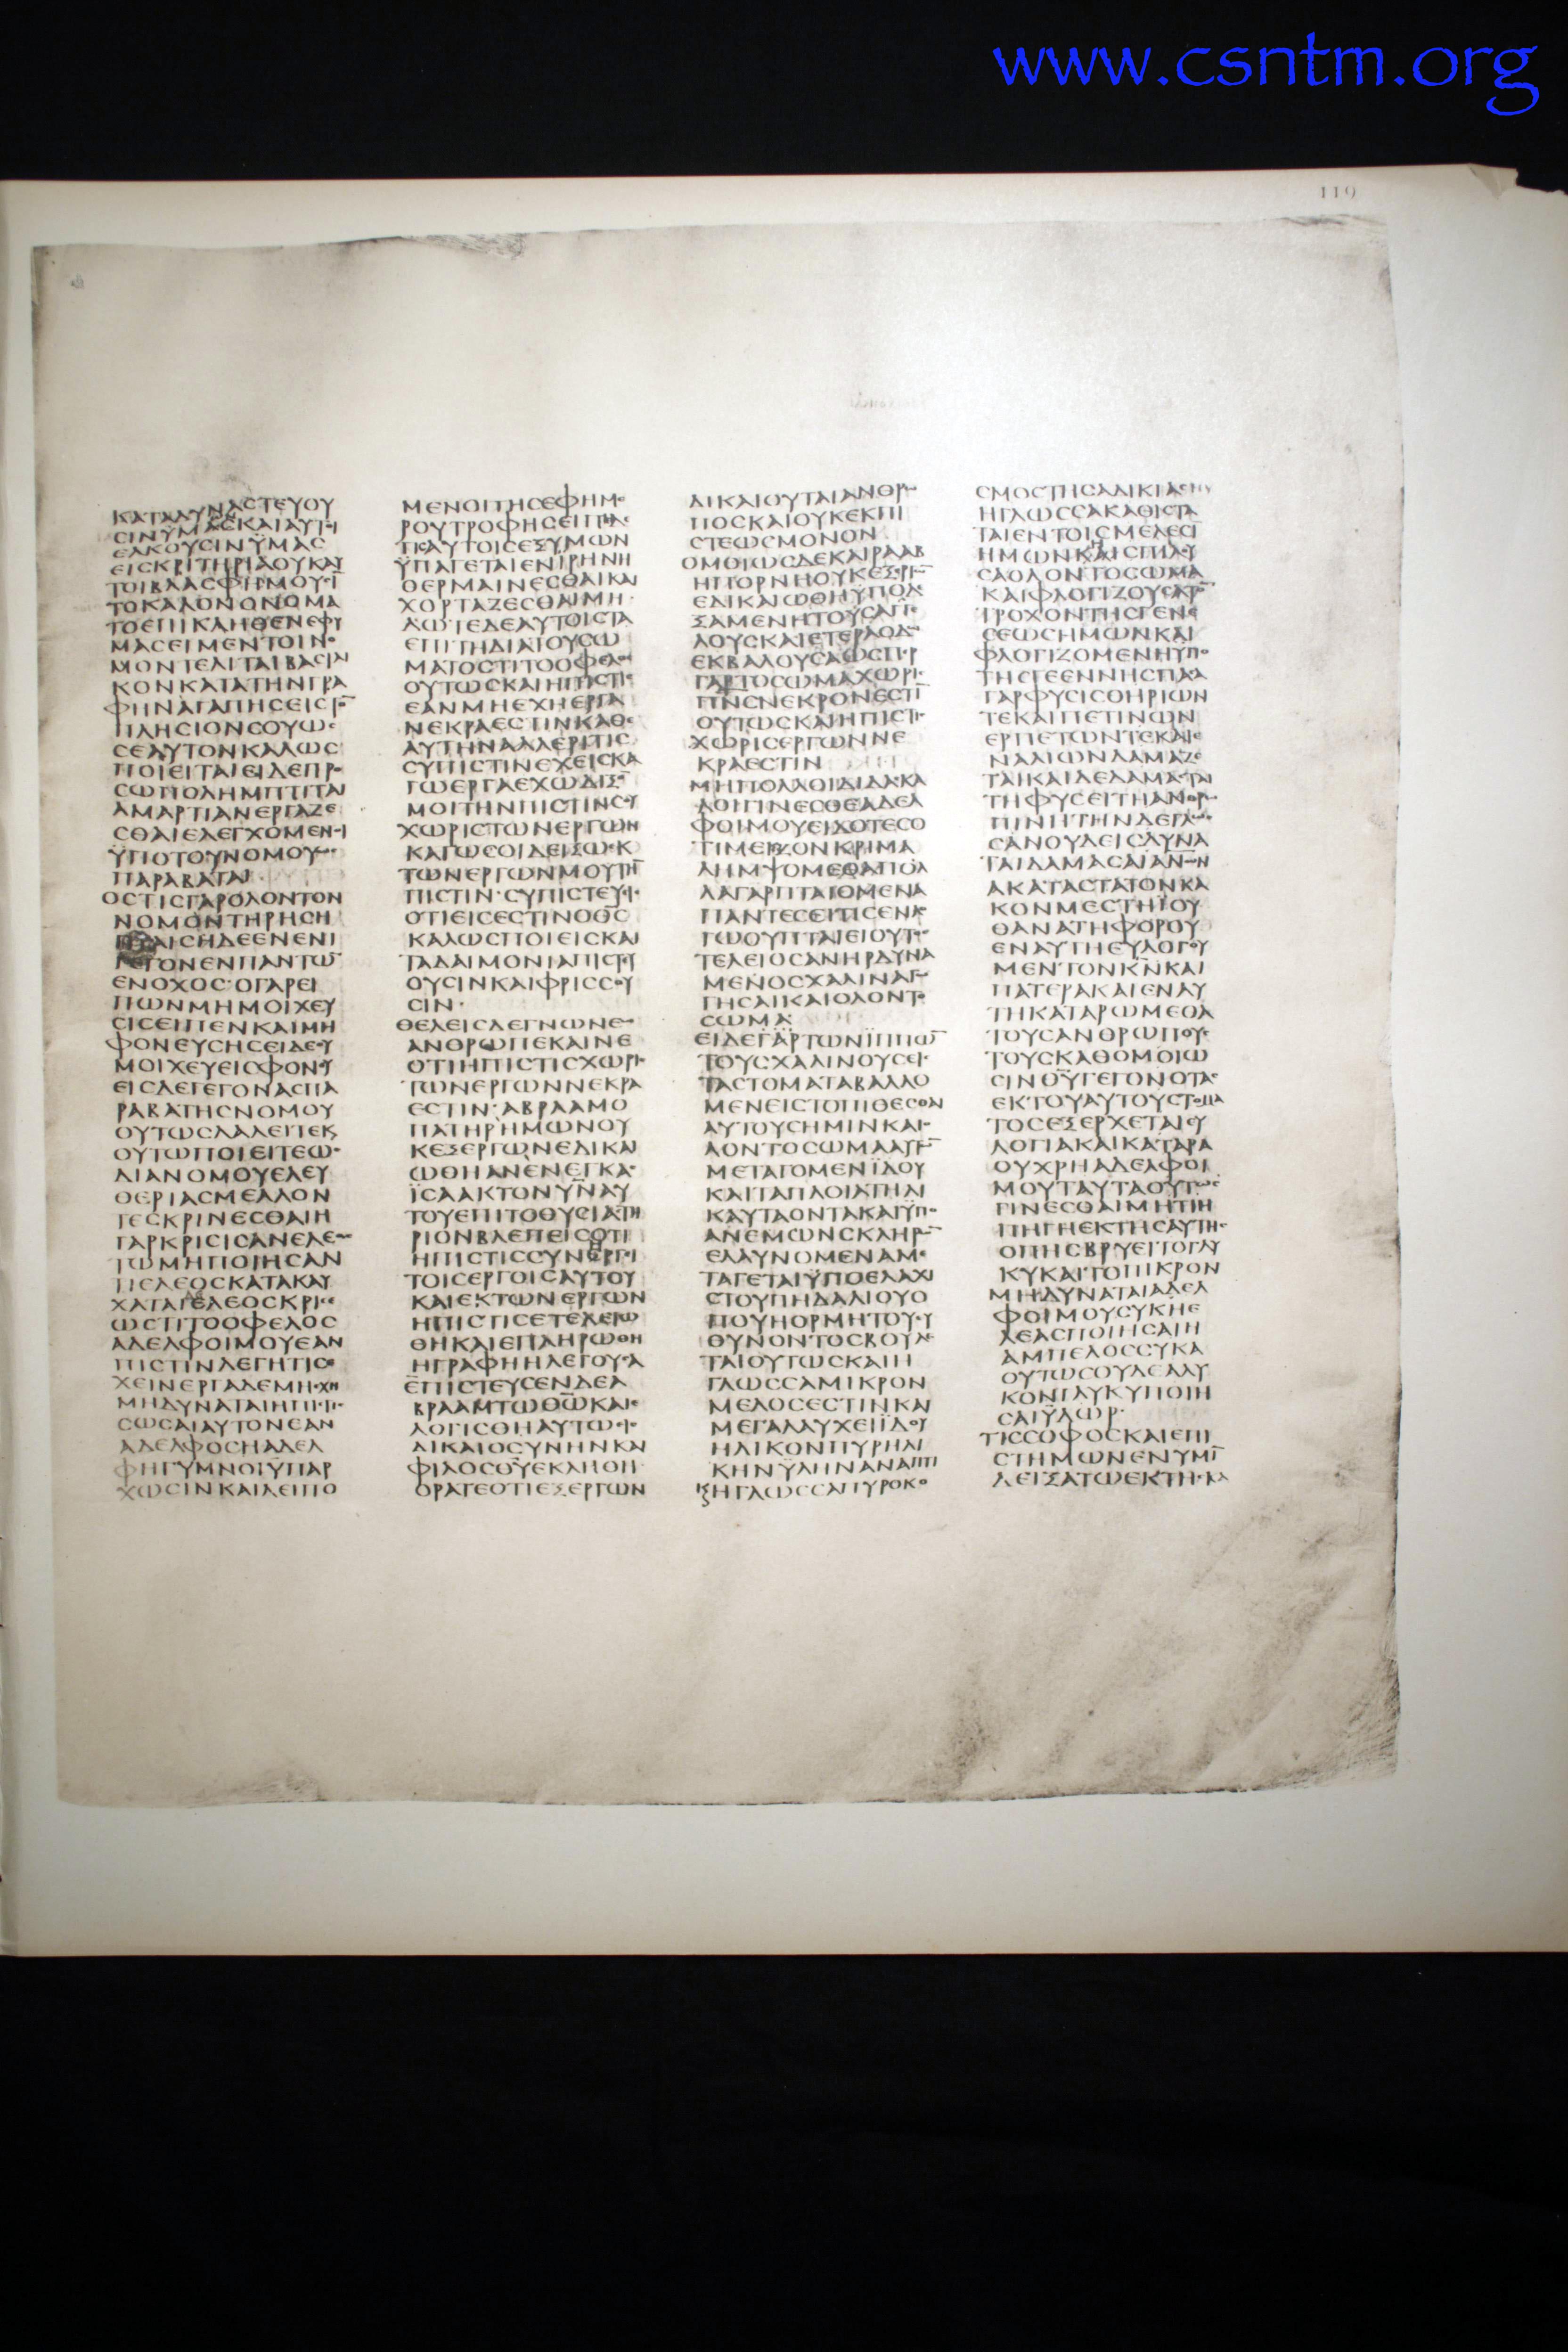 www.csntm.org
119
ΚΑΤΑΔΥΝΑCΤΕΥΟΥ
CΙΝΫΜΑCΚΑΙΑΥΤΟΙ
ΕΛΚΟΥCΙΝΫΜΑC
ΕΙCΚΡΙΤΗΡΙΑΟΥΚΑΥ
ΤΟΙΒΛΑCΦΗΜΟΥCΙ
ΤΟΚΑΛΟΝΟΝΟΜΑ
ΤΟΕΠΙΚΛΗΘΕΝΕΦΥ
ΜΑCΕΙΜΕΝΤΟΙΝΟ
ΜΟΝΤΕΛΙΤΑΙΒΑCΙΛΙ
ΚΟΝΚΑΤΑΤΗΝΓΡΑ
ΦΗΝΑΓΑΠΗCΕΙCΤΟ̅
ΠΛΗCΙΟΝCΟΥΩC
CΕΑΥΤΟΝΚΑΛΩC
ΠΟΙΕΙΤΑΙΕΙΔΕΠΡΟ
CΩΠΟΛΗΜΠΤΙΤΑΙ
ΑΜΑΡΤΙΑΝΕΡΓΑΖΕ
CΘΑΙΕΛΕΓΧΟΜΕΝΟΙ
ΫΠΟΤΟΥΝΟΜΟΥΩC
ΠΑΡΑΒΑΤΑΙ
ΟCΤΙCΓΑΡΟΛΟΝΤΟΝ
ΝΟΜΟΝΤΗΡΗCΗ
ΠΤΑΙCΗΔΕΕΝΕΝΙ
ΓΕΓΟΝΕΝΠΑΝΤΩ̅
ΕΝΟΧΟC·ΟΓΑΡΕΙ
ΠΩΝΜΗΜΟΙΧΕΥ
CΙCΕΙΠΕΝΚΑΙΜΗ
ΦΟΝΕΥCΗCΕΙΔΕΟΥ
ΜΟΙΧΕΥΕΙCΦΟΝΕΥ
ΕΙCΔΕΓΕΓΟΝΑCΠΑ
ΡΑΒΑΤΗCΝΟΜΟΥ
ΟΥΤΩCΛΑΛΕΙΤΕΚ
ΟΥΤΩΠΟΙΕΙΤΕΩC
ΔΙΑΝΟΜΟΥΕΛΕΥ
ΘΕΡΙΑCΜΕΛΛΟΝ
ΤΕCΚΡΙΝΕCΘΑΙΗ
ΓΑΡΚΡΙCΙCΑΝΕΛΕΟC
ΤΩΜΗΠΟΙΗCΑΝ
ΤΙΕΛΕΟCΚΑΤΑΚΑΥ
ΧΑΤΑΙΕΛΕΟCΚΡΙCΕ
ΩCΤΙΤΟΟΦΕΛΟC
ΑΔΕΛΦΟΙΜΟΥΕΑΝ
ΠΙCΤΙΝΛΕΓΗΤΙCΕ
ΧΕΙΝΕΡΓΑΔΕΜΗΕΧΗ
ΜΗΔΥΝΑΤΑΙΗΠΙCΤΙC
CΩCΑΙΑΥΤΟΝΕΑΝ
ΑΔΕΛΦΟCΗΑΔΕΛ
ΦΗΓΥΜΝΟΙΫΠΑΡ
ΧΩCΙΝΚΑΙΛΕΙΠΟ
ΜΕΝΟΙΤΗCΕΦΗΜΕ
ΡΟΥΤΡΟΦΗCΕΙΠΗΔΕ
ΤΙCΑΥΤΟΙCΕΞΥΜΩΝ
ΫΠΑΓΕΤΑΙΕΝΙΡΗΝΗ
ΘΕΡΜΑΙΝΕCΘΑΙΚΑΙ
ΧΟΡΤΑΖΕCΘΑΙΜΗ
ΔΩΤΕΔΕΑΥΤΟΙCΤΑ
ΕΠΙΤΗΔΙΑΤΟΥCΩ
ΜΑΤΟCΤΙΤΟΟΦΕΛΟC
ΟΥΤΩCΚΑΙΗΠΙCΤΙC
ΕΑΝΜΗΕΧΗΕΡΓΑ
ΝΕΚΡΑΕCΤΙΝΚΑΘΕ
ΑΥΤΗΝΑΛΛΕΡΙΤΙC
CΥΠΙCΤΙΝΕΧΕΙCΚΑ
ΓΩΕΡΓΑΕΧΩΔΙΞΟ̅
ΜΟΙΤΗΝΠΙCΤΙΝCΟΥ
ΧΩΡΙCΤΩΝΕΡΓΩΝ
ΚΑΓΩCΟΙΔΕΙΞΩΕΚ
ΤΩΝΕΡΓΩΝΜΟΥΤΗ̅
ΠΙCΤΙΝ·CΥΠΙCΤΕΥΕΙC
ΟΤΙΕΙCΕCΤΙΝΟΘ̅C̅
ΚΑΛΩCΠΟΙΕΙCΚΑΙ
ΤΑΔΑΙΜΟΝΙΑΠΙCΤΕΥ
ΟΥCΙΝΚΑΙΦΡΙCCΟΥ
CΙΝ·
ΘΕΛΕΙCΔΕΓΝΩΝΕΩ
ΑΝΘΡΩΠΕΚΑΙΝΕ
ΟΤΙΗΠΙCΤΙCΧΩΡΙC
ΤΩΝΕΡΓΩΝΝΕΚΡΑ
ΕCΤΙΝ·ΑΒΡΑΑΜΟ
ΠΑΤΗΡΗΜΩΝΟΥ
ΚΕΞΕΡΓΩΝΕΔΙΚΑΙ
ΩΘΗΑΝΕΝΕΓΚΑC
ΪCΑΑΚΤΟΝΥ̅Ν̅ΑΥ
ΤΟΥΕΠΙΤΟΘΥCΙΑCΤΗ
ΡΙΟΝΒΛΕΠΕΙCΟΤΙ
ΗΠΙCΤΙCCΥΝΕΡΓΕΙ
ΤΟΙCΕΡΓΟΙCΑΥΤΟΥ
ΚΑΙΕΚΤΩΝΕΡΓΩΝ
ΗΠΙCΤΙCΕΤΕΛΕΙΩ
ΘΗΚΑΙΕΠΛΗΡΩΘΗ
ΗΓΡΑΦΗΗΛΕΓΟΥCΑ
ΕΠΙCΤΕΥCΕΝΔΕΑ
ΒΡΑΑΜΤΩΘ̅Ω̅ΚΑΙΕ
ΛΟΓΙCΘΗΑΥΤΩΕΙC
ΔΙΚΑΙΟCΥΝΗΝΚΑΙ
ΦΙΛΟCΘ̅Υ̅ΕΚΛΗΘΗ
ΟΡΑΤΕΟΤΙΕΞΕΡΓΩΝ
ΔΙΚΑΙΟΥΤΑΙΑΝΘΡΩ
ΠΟCΚΑΙΟΥΚΕΚΠΙ
CΤΕΩCΜΟΝΟΝ
ΟΜΟΙΩCΔΕΚΑΙΡΑΑΒ
ΗΠΟΡΝΗΟΥΚΕΞΕΡΓΩ̅
ΕΔΙΚΑΙΩΘΗΫΠΟΔΕ
ΞΑΜΕΝΗΤΟΥCΑΓΓΕ
ΛΟΥCΚΑΙΕΤΕΡΑΟΔΩ
ΕΚΒΑΛΟΥCΑΩCΠΕΡ
ΓΑΡΤΟCΩΜΑΧΩΡΙC
Π̅Ν̅C̅ΝΕΚΡΟΝΕCΤΙ̅
ΟΥΤΩCΚΑΙΗΠΙCΤΙC
ΧΩΡΙCΕΡΓΩΝΝΕ
ΚΡΑΕCΤΙΝ
ΜΗΠΟΛΛΟΙΔΙΔΑCΚΑ
ΛΟΙΓΙΝΕCΘΕΑΔΕΛ
ΦΟΙΜΟΥΕΙΔΟΤΕCΟ
ΤΙΜΕΙΖΟΝΚΡΙΜΑ
ΛΗΜΨΟΜΕΘΑΠΟΛ
ΛΑΓΑΡΠΤΑΙΟΜΕΝΑ
ΠΑΝΤΕCΕΙΤΙCΕΝΛΟ
ΓΩΟΥΠΤΑΙΕΙΟΥΤΟC
ΤΕΛΕΙΟCΑΝΗΡΔΥΝΑ
ΜΕΝΟCΧΑΛΙΝΑΓΩ
ΓΗCΑΙΚΑΙΟΛΟΝΤΟ
CΩΜΑ
ΕΙΔΕΓΑΡΤΩΝΪΠΠΩ̅
ΤΟΥCΧΑΛΙΝΟΥCΕΙC
ΤΑCΤΟΜΑΤΑΒΑΛΛΟ
ΜΕΝΕΙCΤΟΠΙΘΕCΘΑΙ
ΑΥΤΟΥCΗΜΙΝΚΑΙΟ
ΛΟΝΤΟCΩΜΑΑΥΤΩ̅
ΜΕΤΑΓΟΜΕΝΪΔΟΥ
ΚΑΙΤΑΠΛΟΙΑΤΗΛΙ
ΚΑΥΤΑΟΝΤΑΚΑΙΫΠΟ
ΑΝΕΜΩΝCΚΛΗΡΩ̅
ΕΛΑΥΝΟΜΕΝΑΜΕ
ΤΑΓΕΤΑΙΫΠΟΕΛΑΧΙ
CΤΟΥΠΗΔΑΛΙΟΥΟ
ΠΟΥΗΟΡΜΗΤΟΥΕΥ
ΘΥΝΟΝΤΟCΒΟΥΛΕ
ΤΑΙΟΥΤΩCΚΑΙΗ
ΓΛΩCCΑΜΙΚΡΟΝ
ΜΕΛΟCΕCΤΙΝΚΑΙ
ΜΕΓΑΛΑΥΧΕΙΪΔΟΥ
ΗΛΙΚΟΝΠΥΡΗΛΙ
ΚΗΝΫΛΗΝΑΝΑΠΤΙ
ΗΓΛΩCCΑΠΥΡΟΚΟ
CΜΟCΤΗCΑΔΙΚΙΑC
ΗΓΛΩCCΑΚΑΘΙCΤΑ
ΤΑΙΕΝΤΟΙCΜΕΛΕCΙ̅
ΗΜΩΝΚΑΙCΠΙΛΟΥ
CΑΟΛΟΝΤΟCΩΜΑ
ΚΑΙΦΛΟΓΙΖΟΥCΑΤΟ̅
ΤΡΟΧΟΝΤΗCΓΕΝΕ
CΕΩCΗΜΩΝΚΑΙ
ΦΛΟΓΙΖΟΜΕΝΗΫΠΟ
ΤΗCΓΕΕΝΝΗCΠΑCΑ
ΓΑΡΦΥCΙCΘΗΡΙΩΝ
ΤΕΚΑΙΠΕΤΙΝΩΝ
ΕΡΠΕΤΩΝΤΕΚΑΙΕ
ΝΑΛΙΩΝΔΑΜΑΖΕ
ΤΑΙΚΑΙΔΕΔΑΜΑCΤΑΙ
ΤΗΦΥCΕΙΤΗΑΝΘΡΩ
ΠΙΝΗΤΗΝΔΕΓΛΩC
CΑΝΟΥΔΕΙCΔΥΝΑ
ΤΑΙΔΑΜΑCΑΙΑΝΘΡΩΠΩΝ
ΑΚΑΤΑCΤΑΤΟΝΚΑ
ΚΟΝΜΕCΤΗΪΟΥ
ΘΑΝΑΤΗΦΟΡΟΥ
ΕΝΑΥΤΗΕΥΛΟΓΟΥ
ΜΕΝΤΟΝΚ̅Ν̅ΚΑΙ
ΠΑΤΕΡΑΚΑΙΕΝΑΥ
ΤΗΚΑΤΑΡΩΜΕΘΑ
ΤΟΥCΑΝΘΡΩΠΟΥC
ΤΟΥCΚΑΘΟΜΟΙΩ
CΙΝΘ̅Υ̅ΓΕΓΟΝΟΤΑC
ΕΚΤΟΥΑΥΤΟΥCΤΟΜΑ
ΤΟCΕΞΕΡΧΕΤΑΙΕΥ
ΛΟΓΙΑΚΑΙΚΑΤΑΡΑ
ΟΥΧΡΗΑΔΕΛΦΟΙ
ΜΟΥΤΑΥΤΑΟΥΤΩC
ΓΙΝΕCΘΑΙΜΗΤΙΗ
ΠΗΓΗΕΚΤΗCΑΥΤΗC
ΟΠΗCΒΡΥΕΙΤΟΓΛΥ
ΚΥΚΑΙΤΟΠΙΚΡΟΝ
ΜΗΔΥΝΑΤΑΙΑΔΕΛ
ΦΟΙΜΟΥCΥΚΗΕ
ΛΕΑCΠΟΙΗCΑΙΗ
ΑΜΠΕΛΟCCΥΚΑ
ΟΥΤΩCΟΥΔΕΑΛΥ
ΚΟΝΓΛΥΚΥΠΟΙΗ
CΑΙΫΔΩΡ·
ΤΙCCΟΦΟCΚΑΙΕΠΙ
CΤΗΜΩΝΕΝΥΜΙ̅
ΔΕΙΞΑΤΩΕΚΤΗCΚΑ